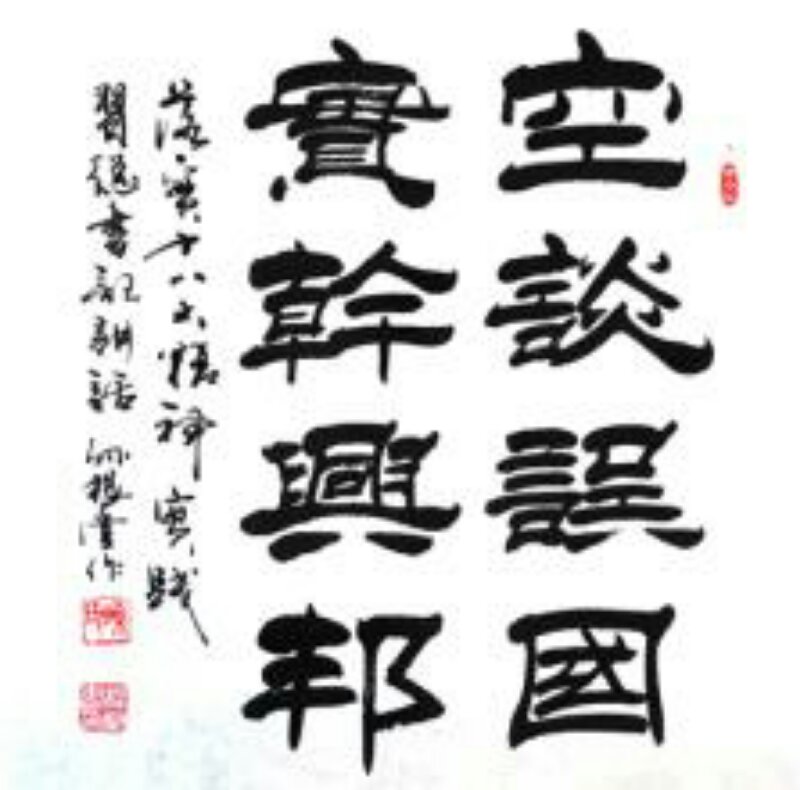 空談誤國
實幹興邦
落實十八大精神實踐
習總書記講話
作